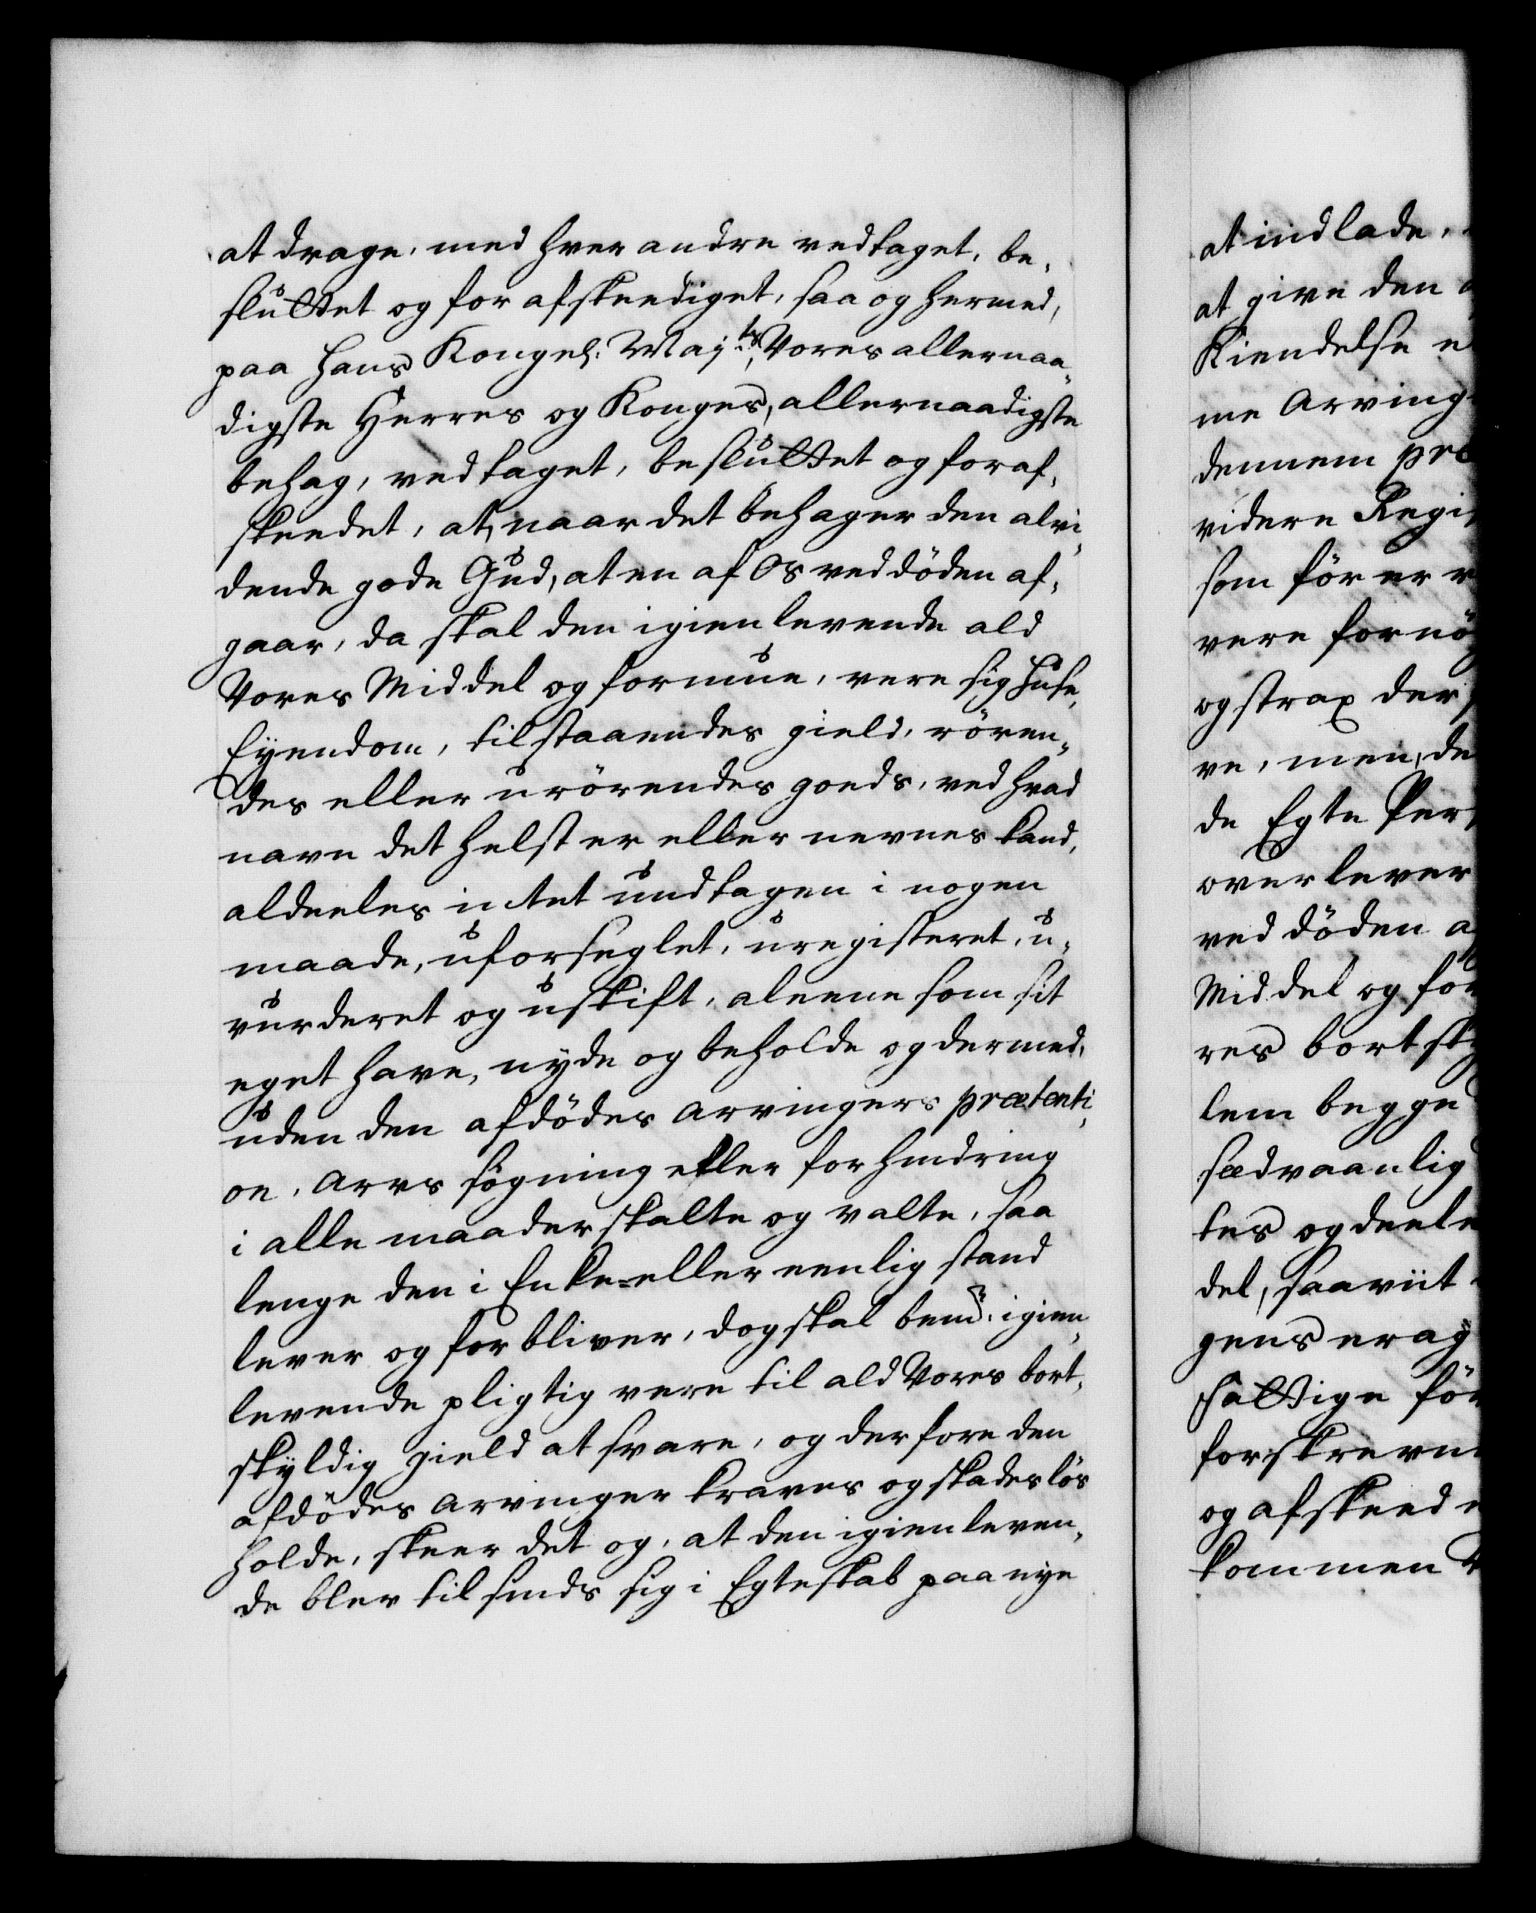 at drage, med hverandre vedtaget, be-
sluttet og forafskeediget, saa og hermed,
paa Hans Kongel: Majts, Vores allernaa-
digste Herres og Konges, allernaadigste
behag, vedtaget, besluttet og foraf-
skeedet, at, naar det behager den alvi-
dende gode Gud, at en af Os ved döden af-
gaar, da skal den igienlevende ald
Vores Middel og formue, være sig Huse,
Eyendom, tilstaaendes gield, rören-
des eller urörendes goeds, ved hvad
navn det helst er eller nevnes kand,
aldeeles intet undtagen i nogen
maade, uforseglet, uregisteret, u-
vurderet og uskift, aleene som sit
eget have, nyde og beholde og dermed,
uden den afdödes Arvingers prætenti-
on, Arvs sögning eller forhindring
i alle maader skalte og valte, saa
lenge den i Enke- eller eenlig stand
lever og forbliver, dog skal bemte: igien-
levende pligtig vere til ald Vores bort-
skyldig gield at svare, og derfore den
afdödes Arvinger kraves og skadeslös
holde, skeer det og, at den igienleven-
de blev tilsinds sig i Egteskab paa nye
at indlade,
at give den
Kiendelse
me Arving
dennem
videre Regi
som för er
vere fornö
og strax der
re, men, de
de Egte Per
overlever
ved döden a
Middel og for
res bortsky
lem begge
sædvaanlig
tes og deele
del, saaviit
gens erag
fattige för
forskrevne
og afskeed
kommen